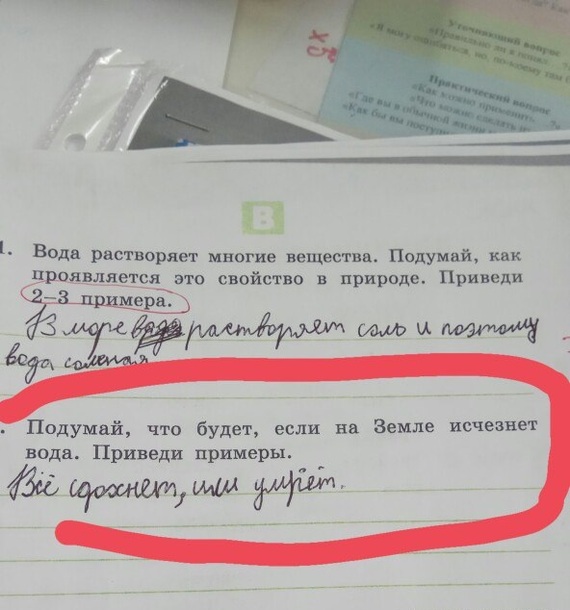 Уточняющий вопрос
«Правильно ли я понял
«Я могу ошибаться, но, по-моему там
Практический вопрос
«Как можно применить
«Что можно сделать из
«Где вы в обычной жизни
«Как бы вы поступ
х5
В
1. Вода растворяет многие вещества. Подумай, как
проявляется это свойство в природе. Приведи
2–3 примера.
В море растворяет соль и поэтому
вода соленая
. Подумай, что будет, если на Земле исчезнет
вода. Приведи примеры.
Всё сдохнет, или умрёт.